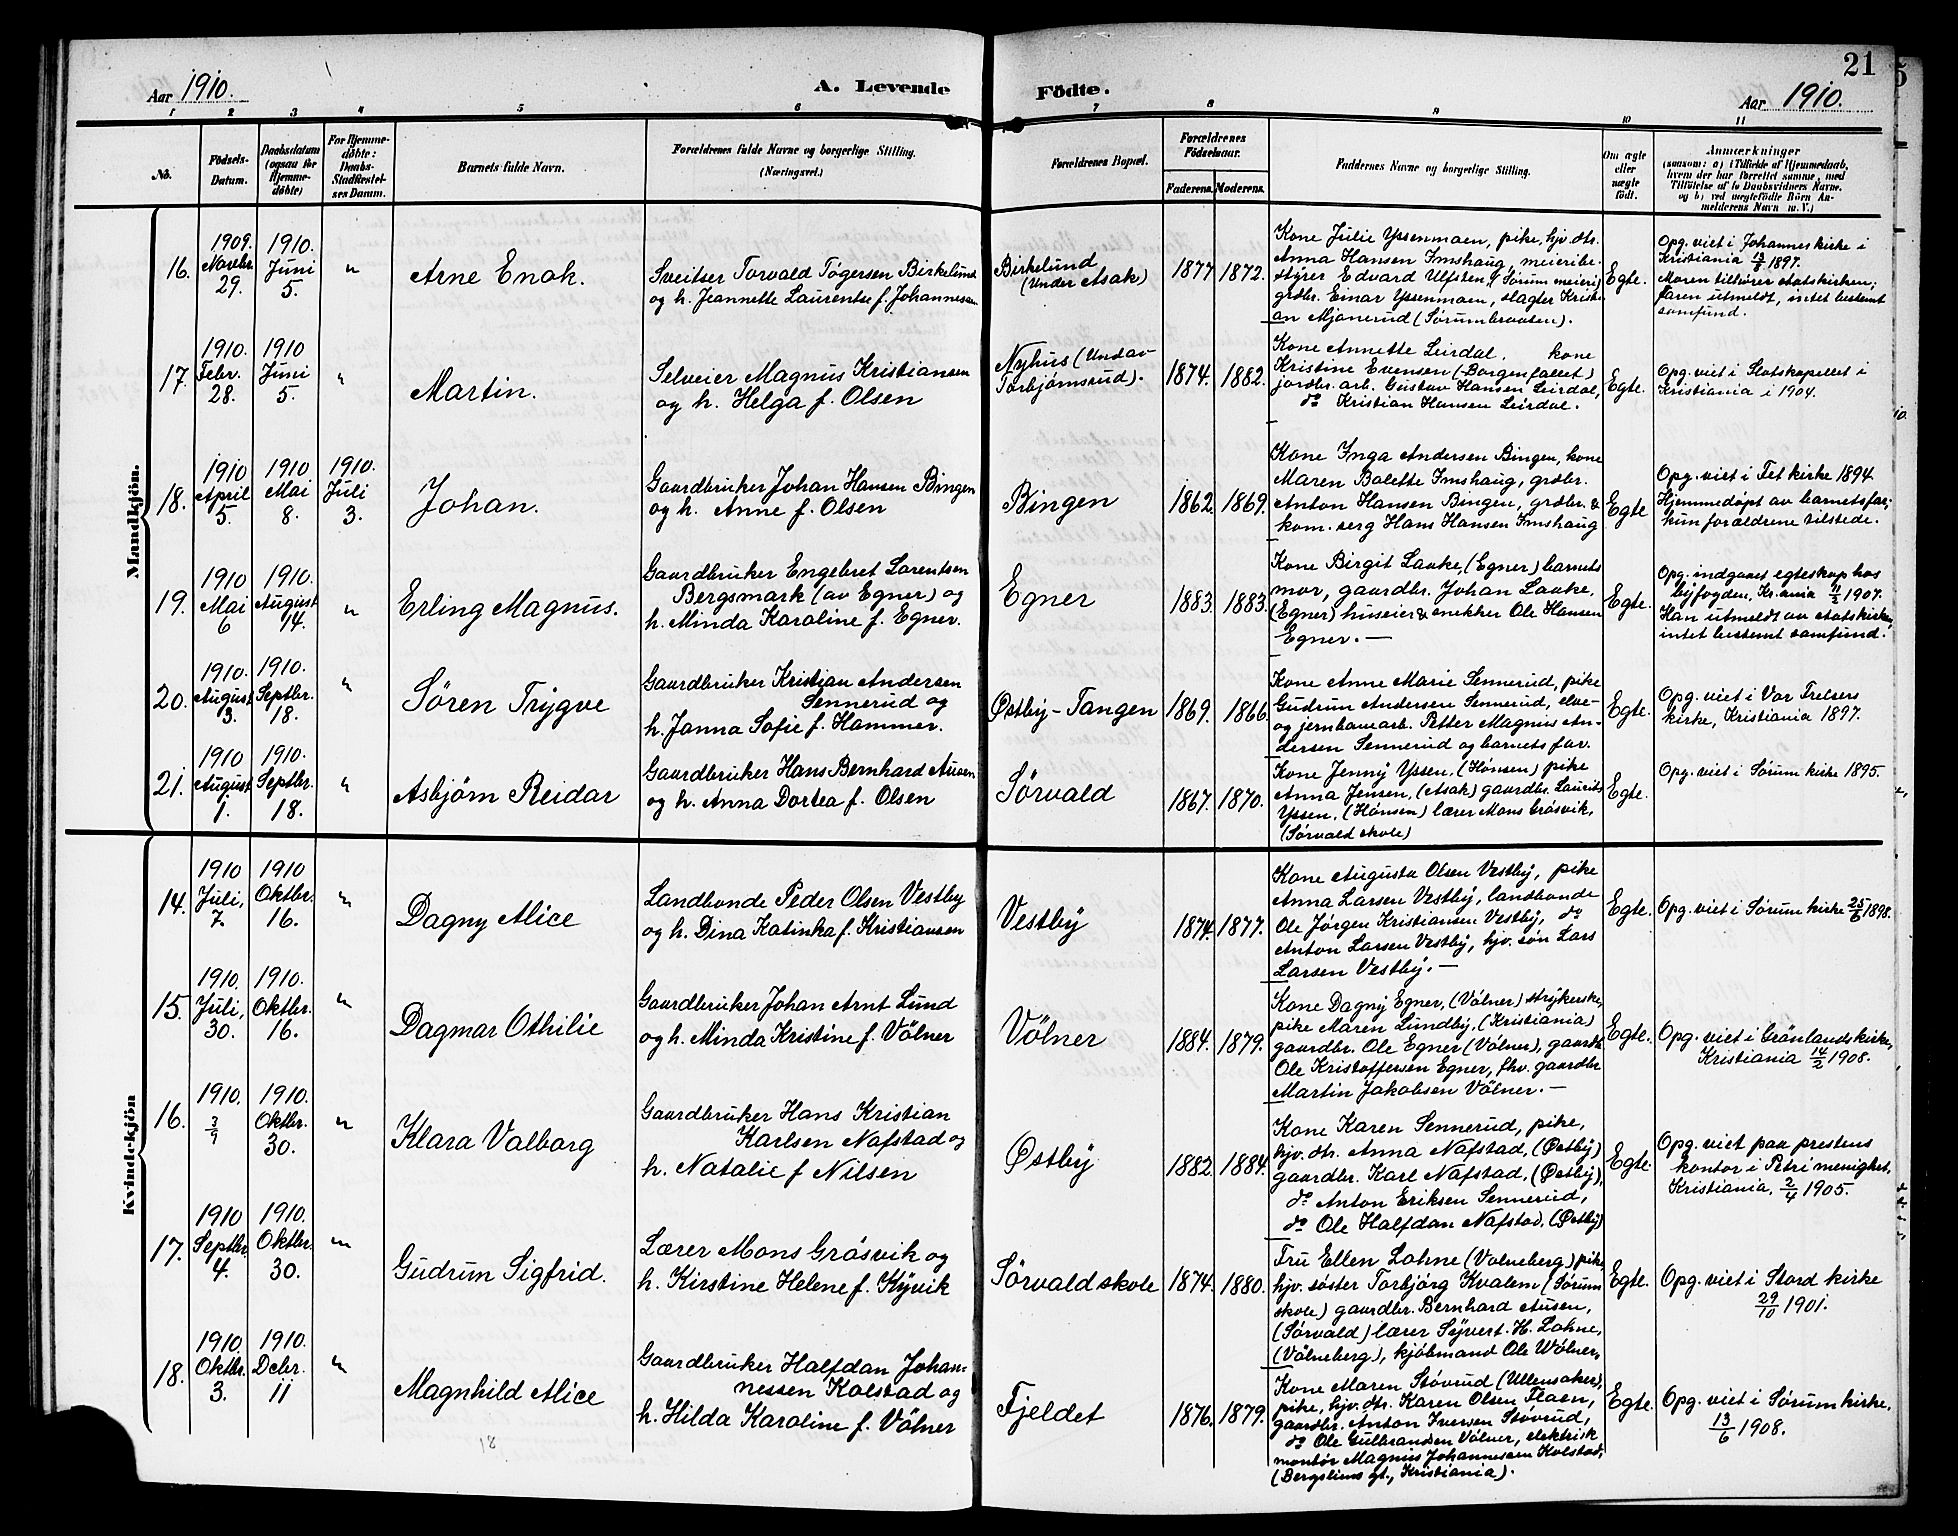 21
Aar 1910.
A. Levende Födte.
Aar 1910.
1 2 3 4 5 6 7 8 9 10 11
No.
Födsels-
Datum.
Daabsdatum
(ogsaa for
Hjemme-
döbte)
For Hjemme-
döbte:
Daabs-
Stadfæstel-
ses Datum.
Barnets fulde Navn.
Forældrenes fulde Navne og borgerlige Stilling.
(Næringsvei.)
Forældrenes Bopæl.
Forældrenes
Födselsaar.
Faderens. Moderens.
Faddernes Navne og borgerlige Stilling.
Om ægte
eller
uægte
födt.
Anmærkninger
(saasom: a) i Tilfælde af Hjemmedaab,
hvem der har forrettet samme, med
Tilföielse af to Daabsvidners Navne.
og b) ved uægtefödte Börn An-
melderens Navn m. V.)
Mandkjön.
16.
1909.
Novbr.
29.
1910.
Juni
5.
"
Arne Enok.
Sveitser Torvald Tögersen Birkelund
og h. Jeannette Laurentse f. Johannesen
Birkelund
(under Asak)
1877 1872.
Kone Julie Yssenmoen, pike, hjv. dtr.
Anna Hansen Imshaug, meieribe-
styrer Edvard Ulfsten, (Sørum meieri)
grdbr. Einar Yssenmoen, slagter Kristi-
an Mjønerud (Sørumbraaten).
Egte.
Opg. viet i Johannes kirke i
Kristiania 13/8 1897.
Moren tilhører statskirken;
faren utmeldt, intet bestemt
samfund.
17.
1910.
Febr.
28.
1910
Juni
5.
"
Martin.
Selveier Magnus Kristiansen
og h. Helga f. Olsen
Nyhus (Under
Torbjørnsrud).
1874. 1882.
Kone Annette Leirdal. kone
Kristine Evensen (Borgenfallet)
jordbr. arb. Gustav Hansen Leirdal,
do Kristian Hansen Leirdal.
Egte.
Opg. viet i Slotskapellet i
Kristiania i 1904.
18.
1910
April
5.
1910
Mai
8.
1910.
Juli
3.
Johan.
Gaardbruker Johan Hansen Bingen
og h. Anne f. Olsen
Bingen
1862. 1869.
Kone Inga Andersen Bingen, kone
Maren Bolette Imshaug, grdbr.
Anton Hansen Bingen, grdbr. &
kom. serg Hans Hansen Imshaug
Egte
Opg. viet i Fet kirke 1894.
Hjemmedøpt av barnets far;
kun forældrene tilstede.
19.
1910
Mai
6
1910.
August
14.
"
Erling Magnus.
Gaardbruker Engebret Lorentsen
Bergsmark (av Egner) og
h. Minda Karoline f. Egner.
Egner
1883. 1883.
Kone Birgit Laake, (Egner) barnets
mor, gaardbr. Johan Laake.
(Egner) huseier & snekker Ole Hansen
Egner. —
Egte.
Opg. indgaaet egteskap hos
byfogden, Kr.ania 11/2 1907.
Han utmeldt av statskirken,
intet bestemt samfund.
20.
1910.
August
3.
1910.
Septbr.
18.
"
Sören Trygve
Gaardbruker Kristian Andersen
Sennerud og
h. Janna Sofie f. Hammer.
Østby-Tangen
1869. 1866.
Kone Anne Marie Sennerud, pike
Gudrun Andersen Sennerud, elve-
og jernbanearb. Petter Magnus An-
dersen Sennerud og barnets far.
Egte.
Opg. viet i Vor Frelsers
kirke, Kristiania 1897.
21.
1910
August
1.
1910.
Septbr.
18.
"
Asbjørn Reidar
Gaardbruker Hans Bernhard Ausen
og h. Anna Dortea f. Olsen
Sörvald
1867. 1870.
Kone Jenny Yssen, (Hønsen) pike
Anna Jensen, (Asak) gaardbr. Laurits
Yssen, (Hønsen) lærer Mons Gråsvik,
(Sørvald skole)
Egte.
Opg. viet i Sørum kirke 1895.
Kvindekjön
14.
1910
Juli,
7.
1910
Oktbr.
16.
"
Dagny Alice
Landbonde Peder Olsen Vestby
og h. Dina Katinka f. Kristiansen
Vestby
1874. 1877.
Kone Augusta Olsen Vestby, pike
Anna Larsen Vestby, landbonde
Ole Jørgen Kristiansen Vestby, do
Anton Larsen Vestby, hjv. søn Lars
Larsen Vestby. —
Egte.
Opg. viet i Sørum kirke 25/6 1898.
15.
1910.
Juli,
30.
1910.
Oktbr.
16.
"
Dagmar Othilie
Gaardbruker Johan Arnt Lund
og h. Minda Kristine f. Völner
Völner
1884. 1879.
Kone Dagny Egner, (Völner) strykerske,
pike Maren Lundby, (Kristiania)
gaardbr. Ole Egner (Völner), gaardbr
Ole Kristoffersen Egner, fhv. gaardbr
Martin Jakobsen Völner. —
Egte.
Opg. viet i Grønlands kirke,
Kristiania 14/2 1908.
16.
1910.
3/9
1910.
Oktbr.
30.
"
Klara Valborg
Gaardbruker Hans Kristian
Karlsen Nafstad og
h. Natalie f Nilsen
Østby
1882. 1884.
Kone Karen Sennerud, pike,
hjv. dtr. Anna Nafstad, (Østby)
gaardbr. Karl Nafstad, (Østby),
do Anton Eriksen Sennerud,
do Ole Halfdan Nafstad, (Østby)
Egte.
Opg. viet paa prestens
kontor i Petri menighet,
Kristiania, 2/4 1905.
17.
1910
Septbr.
4.
1910.
Oktbr.
30.
"
Gudrun Sigfrid.
Lærer Mons Gråsvik og
h. Kirstine Helene f. Kyvik
Sörvald skole
1874. 1880.
Fru Ellen Lohne (Volneberg) pike,
hjv. søster Torbjørg Kvalem (Sørum
skole) gaardbr. Bernhard Ausen,
(Sørvald) lærer Syvert. H. Lohne,
(Völneberg), kjøbmand Ole Wölner,
Egte.
Opg. viet i Stord kirke
29/10 1901.
18.
1910.
Oktbr.
3.
1910.
Debr.
11
"
Magnhild Alice
Gaardbruker Halfdan Johan-
nessen Kolstad og
h. Hilda Karoline f. Völner
Fjeldet
1876. 1879.
Kone Maren Støvrud (Ullensaker),
pike, hjv. dtr. Karen Olsen Flaen,
gaardbr. Anton Iversen Støvrud,
do Ole Gulbrandsen Völner, elektrisk
montør Magnus Johannessen Kolstad,
(Bergsliens gt., Kristiania).
Egte.
Opg. viet i Sørum kirke,
13/6 1908.
18